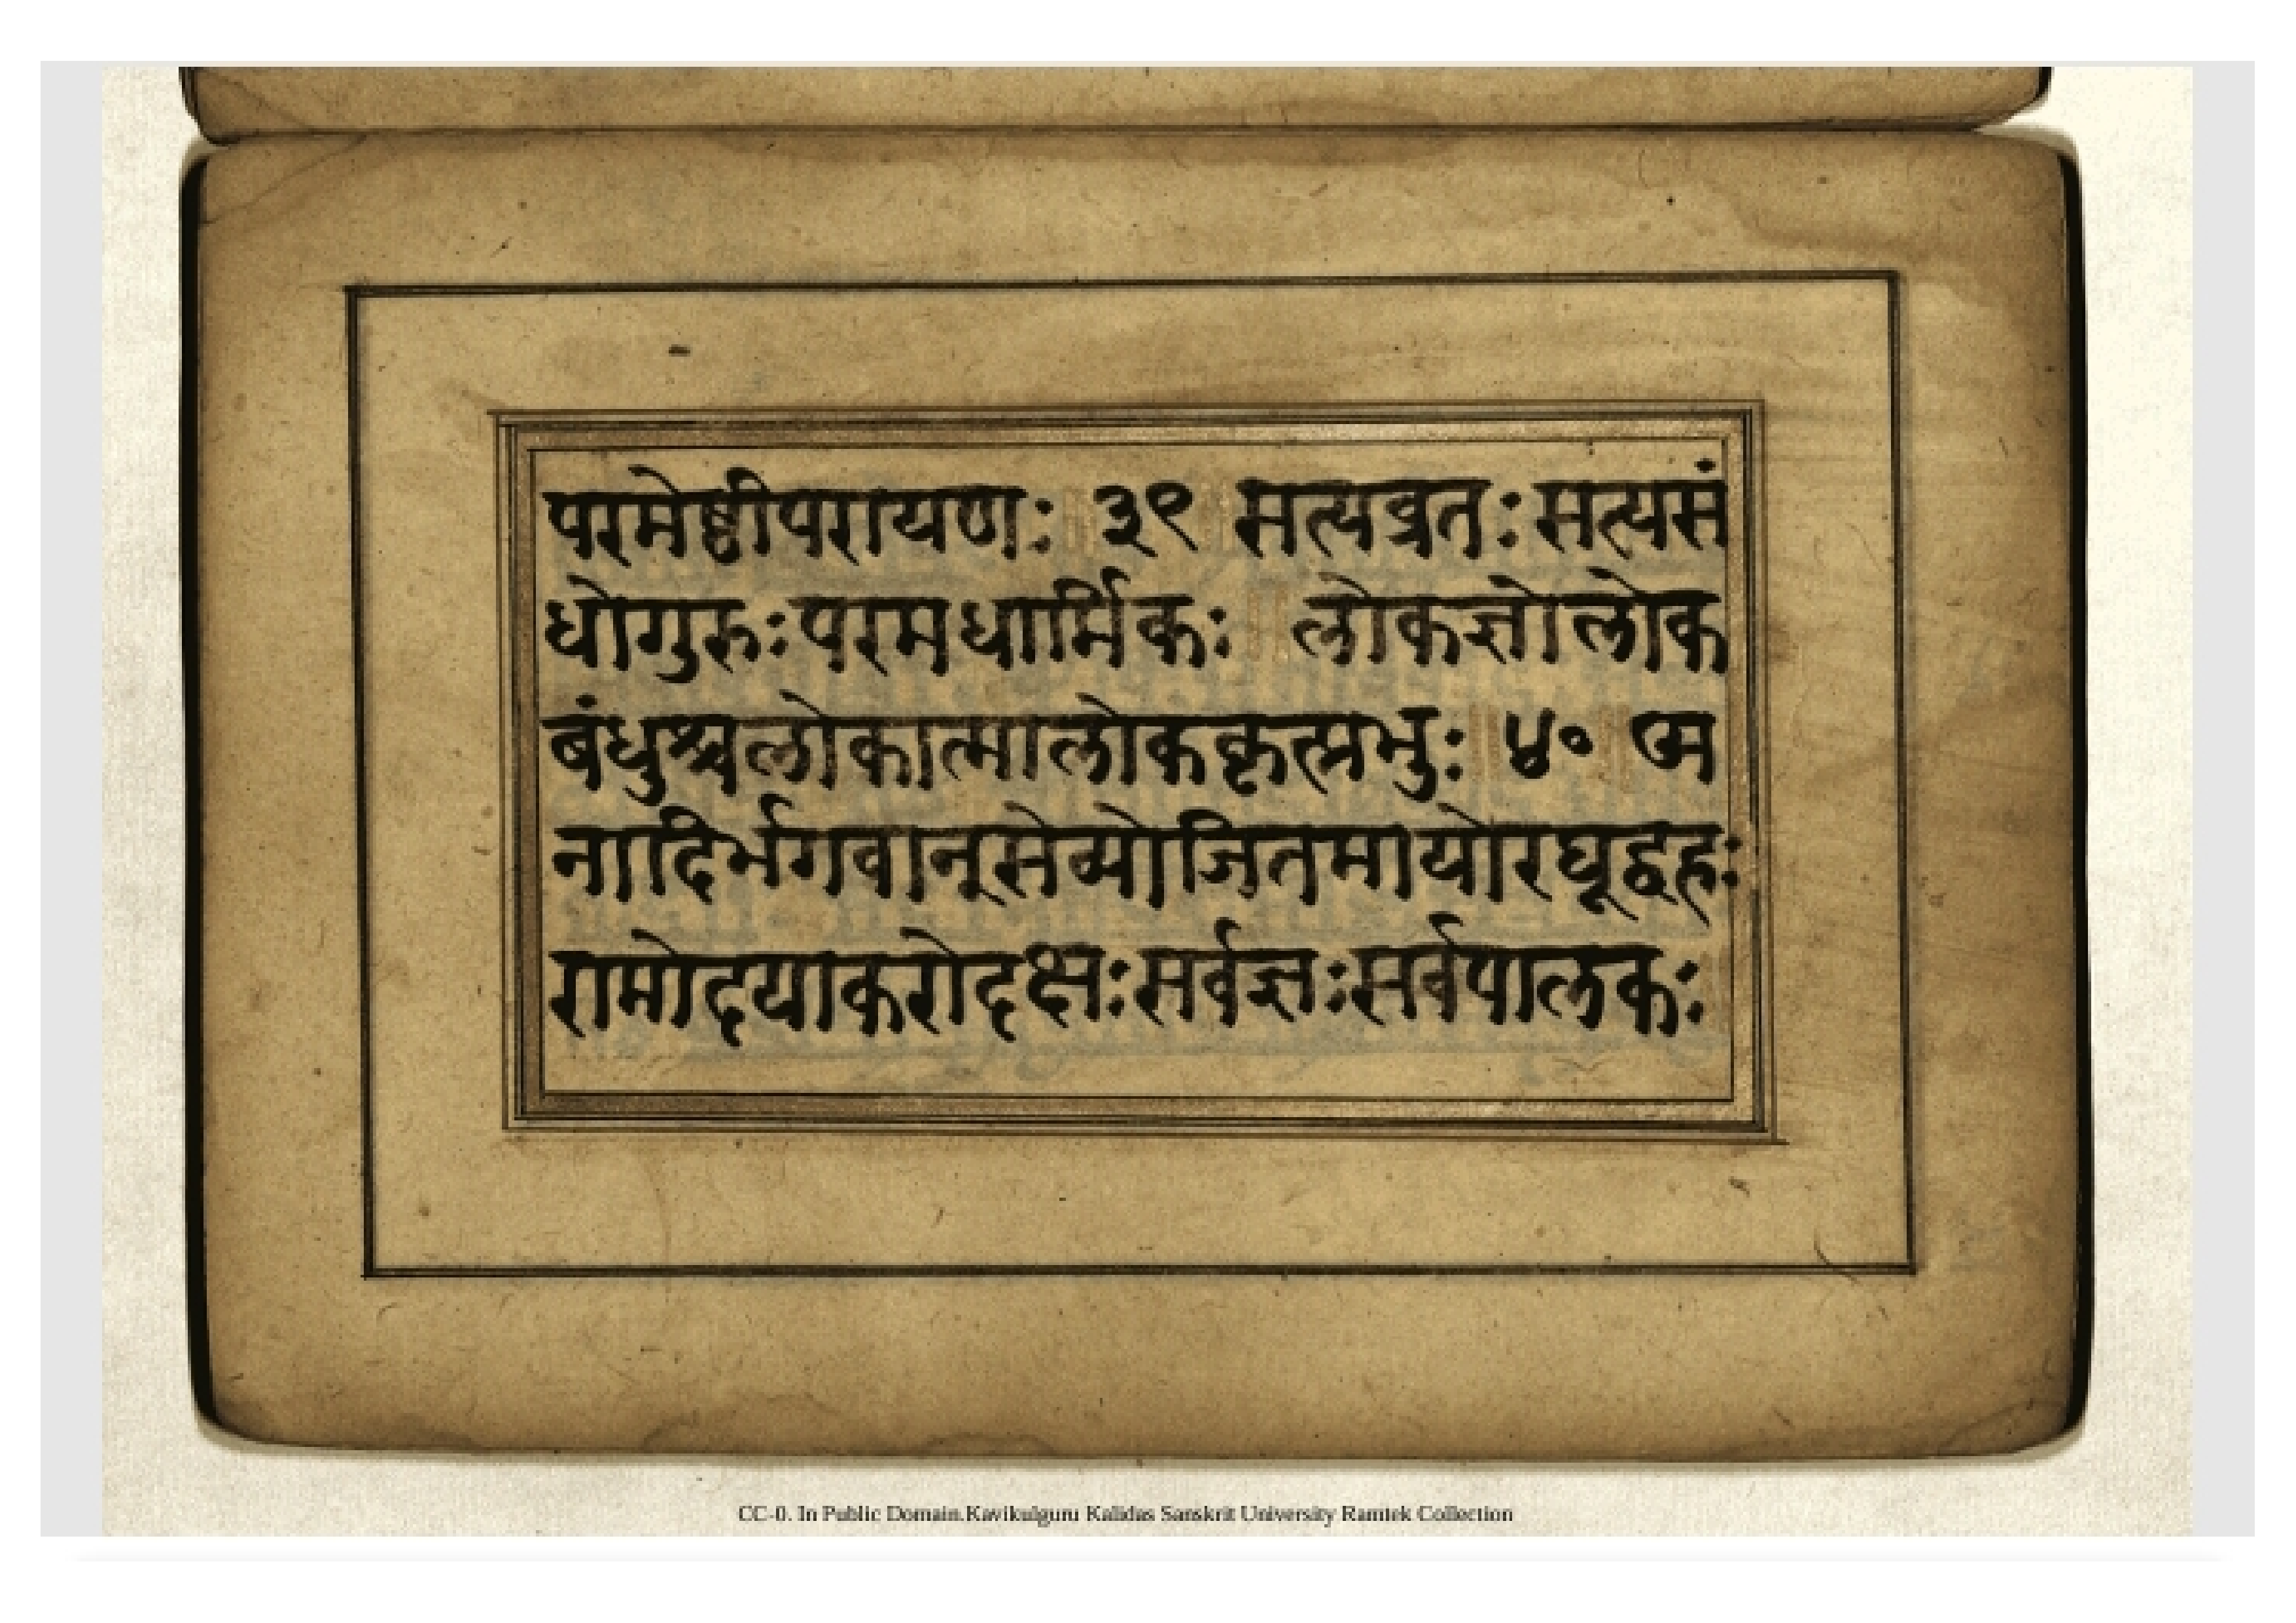 परमेष्ठीपरायणः ॥ ३९ ॥ सत्यव्रतः सत्यसं
धोगुरुः परमधार्मिकः ॥ लोकज्ञोलोक
बंधुश्चलोकात्मालोककृत्प्रभुः ॥ ४० ॥ अ
नादिर्भगवान्सेव्योजितमायोरघूद्वहः
रामोदयाकरोदक्षः सर्वज्ञः सर्वपालकः
CC-0. In Public Domain.Kavikulguru Kalidas Sanskrit University Ramtek Collection